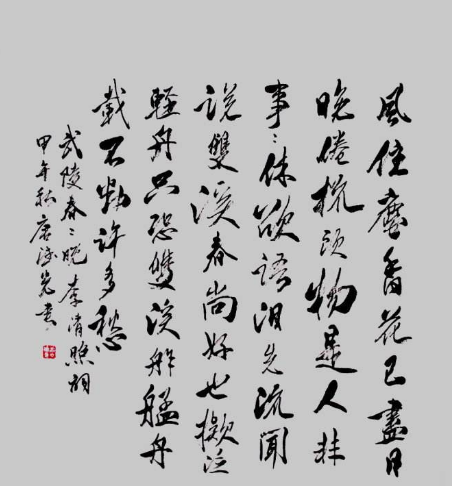 風住塵香花已盡日
晚倦梳頭物是人非
事々休欲語泪先流聞
說雙溪春尚好也擬泛
輕舟只恐雙溪舴艋舟
載不動許多愁
武陵春々晚李清照詞
甲午秋唐書